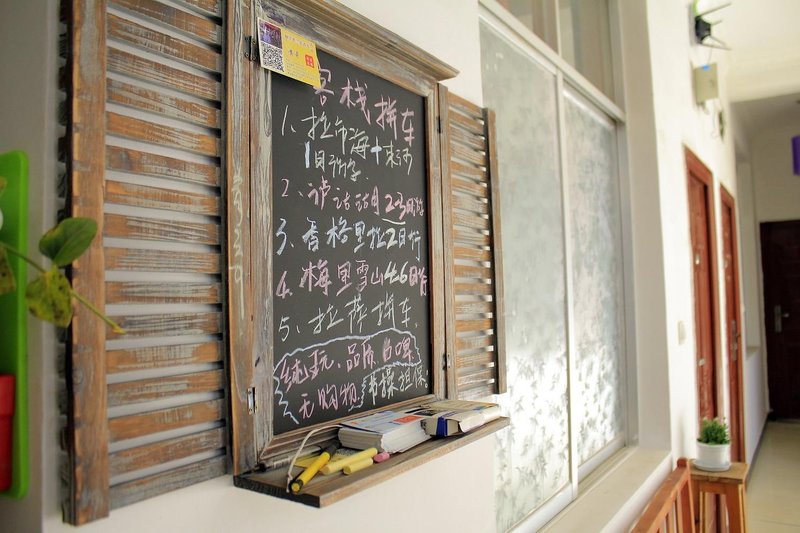 客栈拼车
1、拉市海+束河
1日游
2、泸沽湖2-3日游
3、香格里拉2日行
4、梅里雪山4-6日行
5、拉萨拼车、
纯玩、品质、口碑
无购物、节操担保